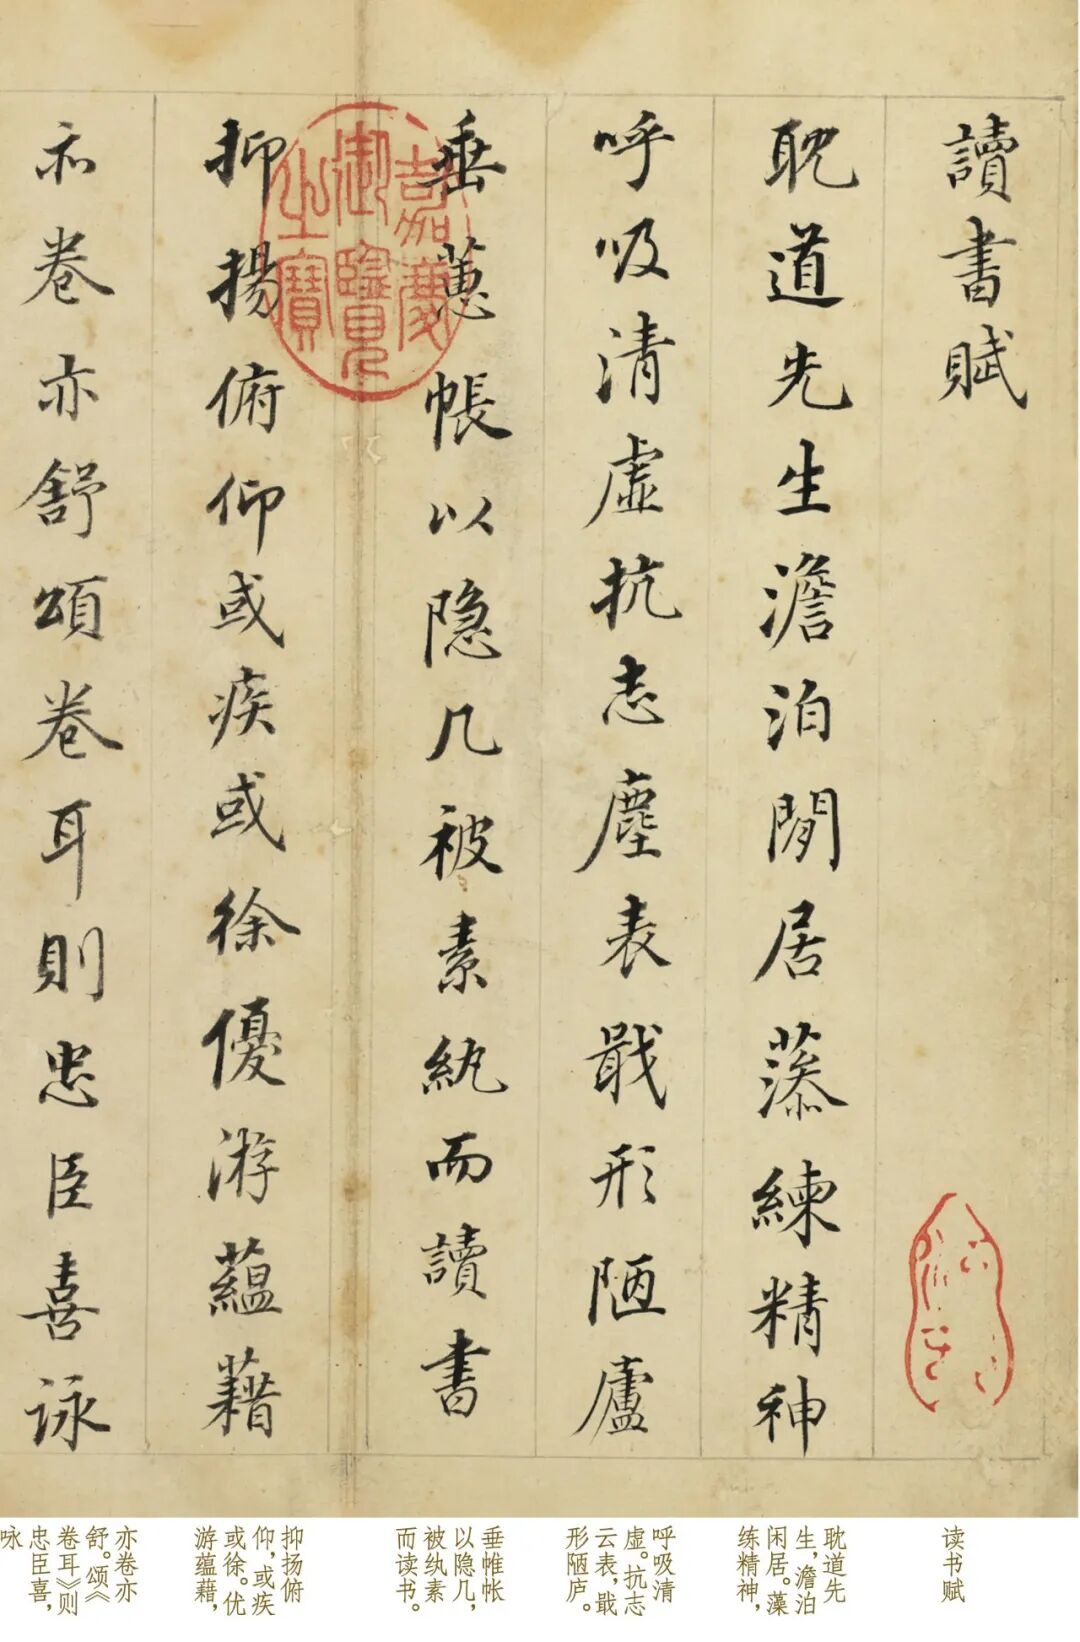 讀書賦
耽道先生澹泊閒居藻練精神
呼吸清虛抗志塵表戢形陋廬
垂蕙帳以隐几被素紈而讀書
抑揚俯仰或疾或徐優游蘊藉
亦卷亦舒頌卷耳則忠臣喜詠
嘉慶
御覽
之寶
读书赋
耽道先
生，澹泊
闲居。藻
练精神，
呼吸清
虚。抗志
云表，戢
形陋庐。
垂帷帐
以隐几，
被纨素
而读书。
抑扬俯
仰，或疾
或徐。优
游蕴藉，
亦卷亦
舒。颂《
卷耳》则
忠臣喜，
咏